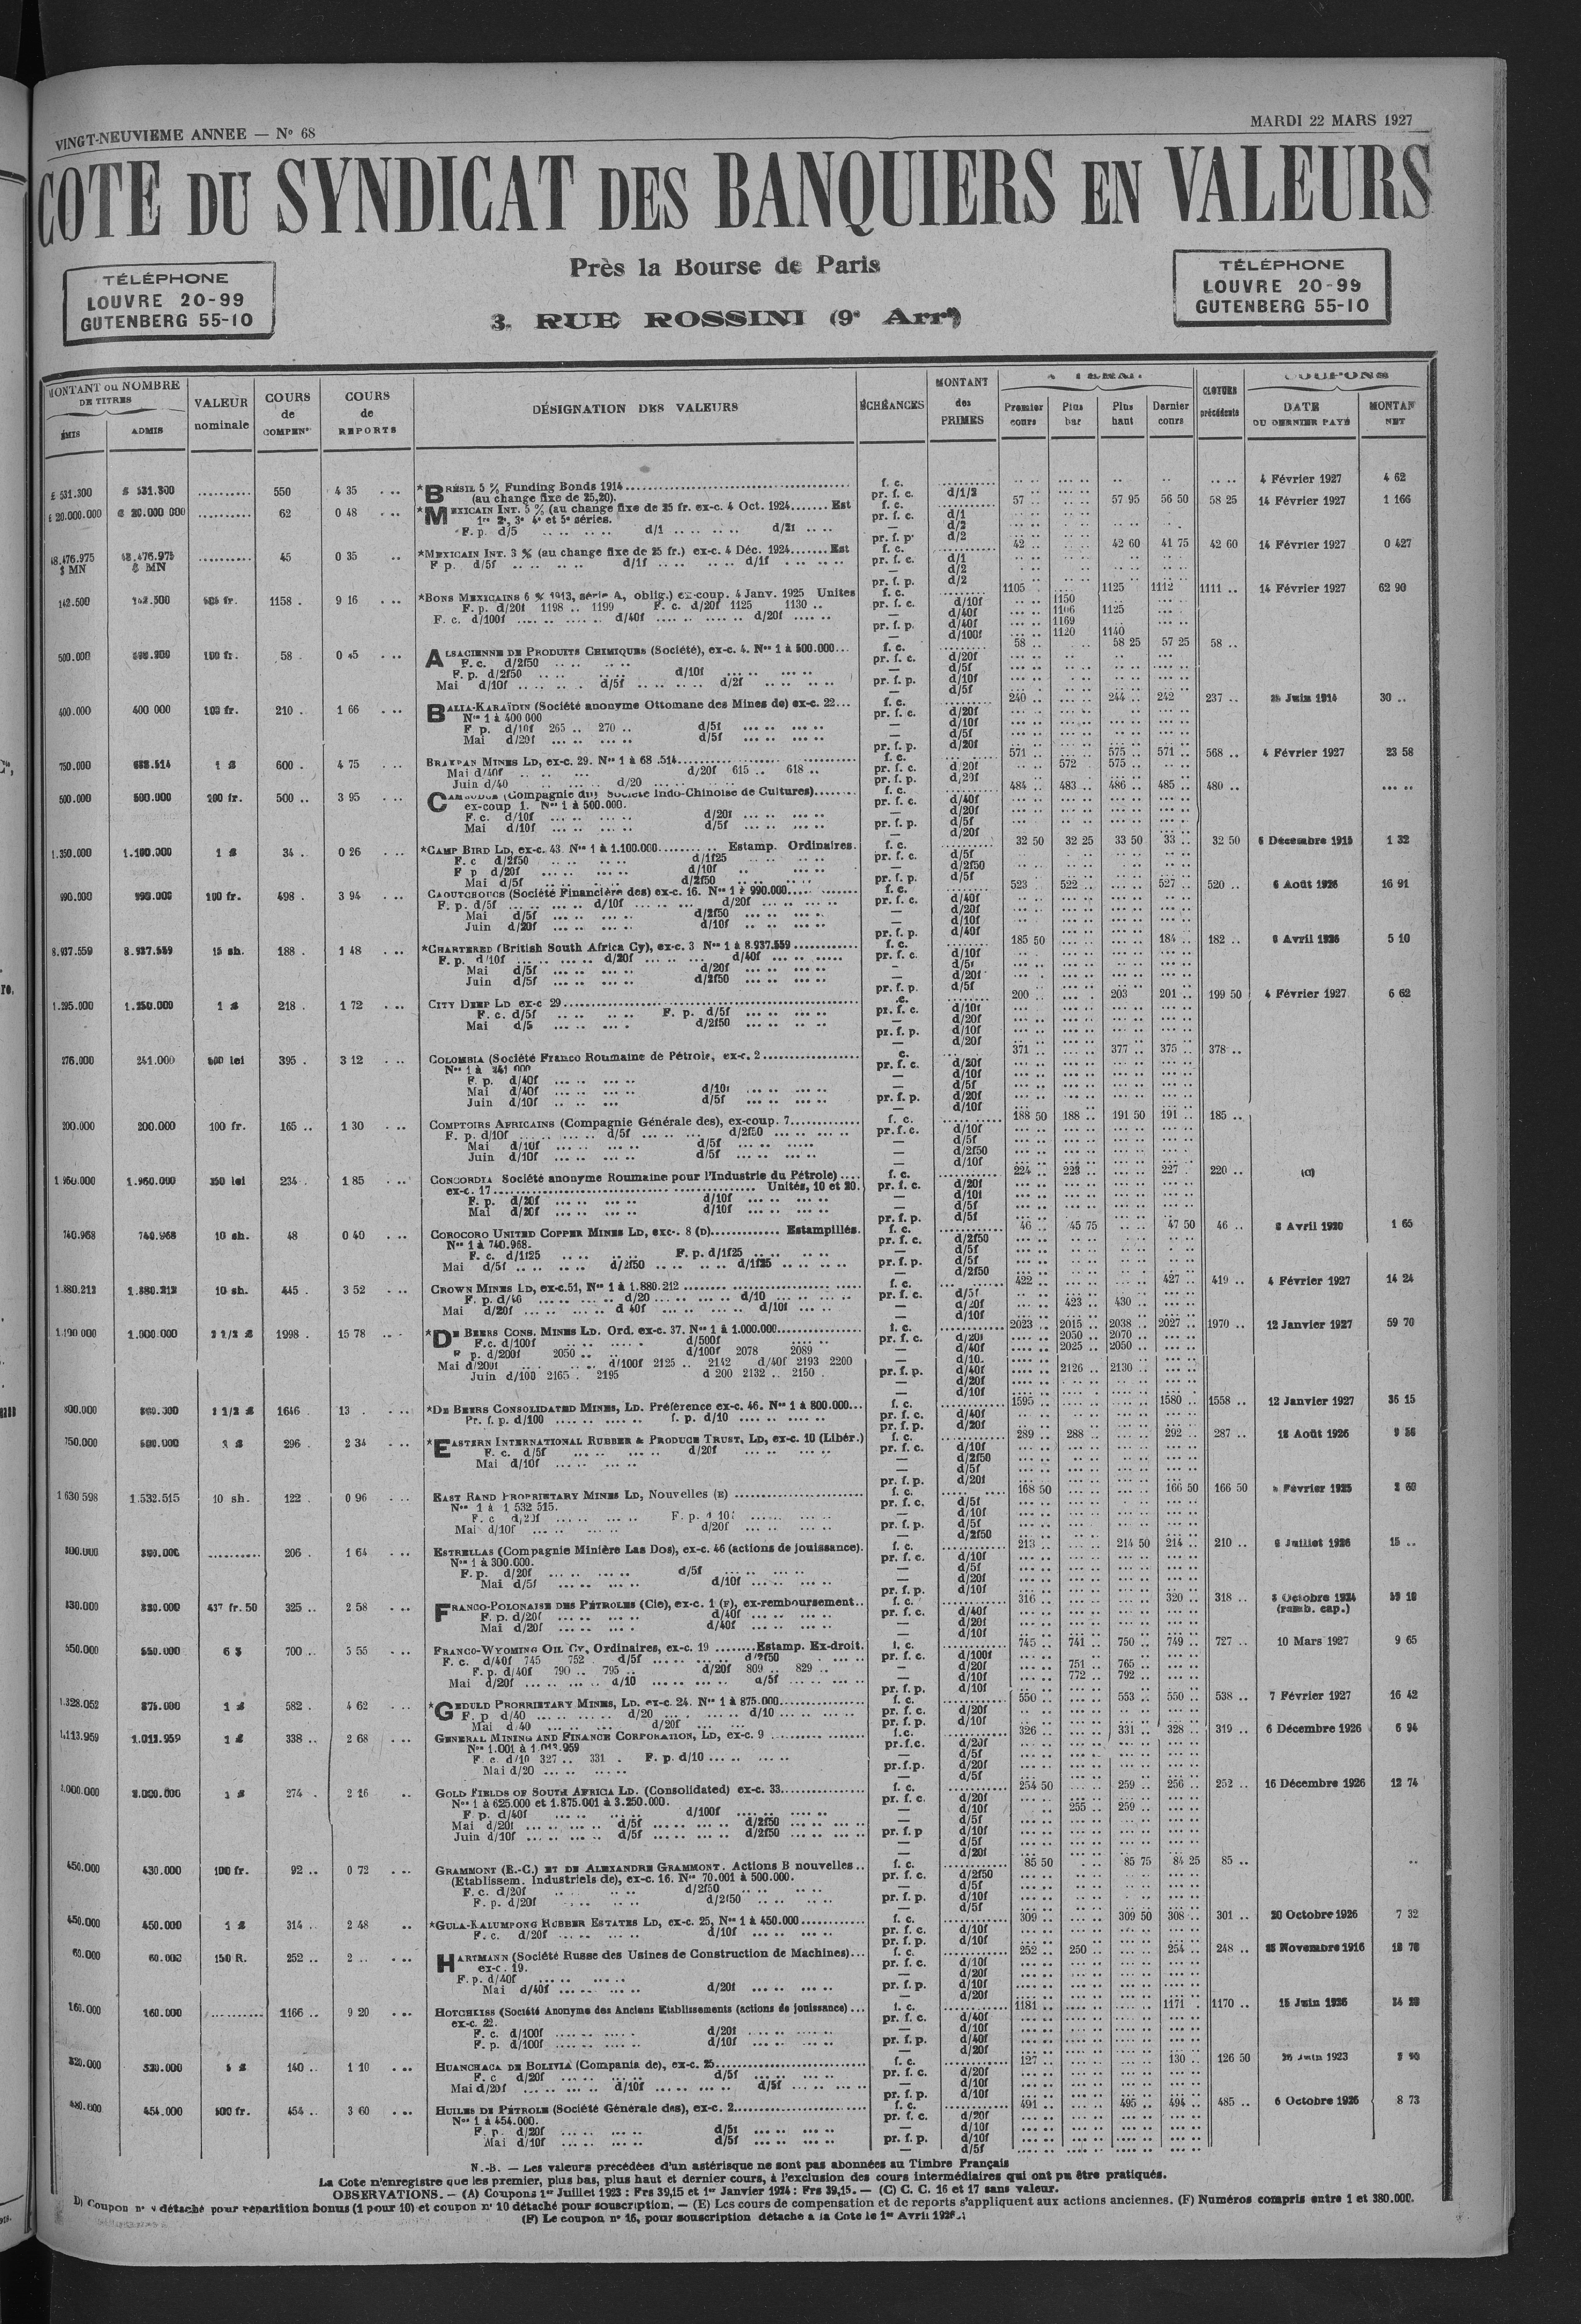 VINGT-NEUVIEME ANNEE — Nº 68
MARDI 22 MARS 1927
COTE DU SYNDICAT DES BANQUIERS EN VALEURS
TÉLÉPHONE
LOUVRE 20-99
GUTENBERG 55-10
Près la Bourse de Paris
3, RUE ROSSINI (9e Arrt)
TÉLÉPHONE
LOUVRE 20-99
GUTENBERG 55-10
MONTANT ou NOMBRE DE TITRES
ÉMIS ADMIS
VALEUR nominale
COURS de COMPENon
COURS de REPORTS
DÉSIGNATION DES VALEURS
ÉCHÉANCES
MONTANT des PRIMES
Premier cours
Plus bas
Plus haut
Dernier cours
CLOTURE précédente
COUPONS
DATE DU DERNIER PAYÉ
MONTAN NET
£ 531.300 £ 531.300 .......... 550 4 35 *BRÉSIL 5 % Funding Bonds 1914 f. c. 4 Février 1927 4 62
(au change fixe de 25,20). pr. f. c. d/1/2
£ 20.000.000 £ 20.000 000 .......... 62 0 48 *MEXICAIN INT. 5 % (au change fixe de 25 fr. ex-c. 4 Oct. 1924....... Est f. c. 57 .. 57 95 56 50 58 25 14 Février 1927 1 166
1re 2e, 3e 4e et 5e séries. pr. f. c. d/1
F. p. d/5 .. .. d/1 .. .. d/2f .. .. — d/2
pr. f. p. d/2
48.476.975 $ MN 48.476.975 $ MN .......... 45 0 35 *MEXICAIN INT. 3 % (au change fixe de 25 fr.) ex-c. 4 Déc. 1924....... Est f. c. 42 .. 42 60 41 75 42 60 14 Février 1927 0 427
F p. d/5f .. .. d/1f .. .. d/1f .. .. pr. f. c. d/1
— d/2
pr. f. p. d/2
142.500 142.500 505 fr. 1158 . 9 16 *BONS MEXICAINS 6 % 1913, série A, oblig.) ex-coup. 4 Janv. 1925 Unites f. c. 1105 1125 1112 1111 .. 14 Février 1927 62 90
F. p. d/20f 1198 .. 1199 F. c. d/20f 1125 1130 .. pr. f. c. d/10f 1150
F. c. d/100f .... .. d/40f .... .. d/20f .... .. — d/40f 1106 1125
pr. f. p. d/40f 1169
— d/100f 1120 1140
500.000 100 fr. 58 . 0 45 ALSACIENNE DE PRODUITS CHIMIQUES (Société), ex-c. 4. Nos 1 à 500.000... f. c. 58 .. 58 25 57 25 58 ..
F. c. d/2f50 .. .. pr. f. c. d/20f
F. p. d/2f50 .. .. d/10f ... .. — d/5f
Mai d/10f .. .. d/5f .. .. d/2f .. .. pr. f. p. d/10f
— d/5f
400.000 400 000 100 fr. 210 . 1 66 BALIA-KARAÏDIN (Société anonyme Ottomane des Mines de) ex-c. 22... f. c. 240 .. 244 .. 242 237 .. Juin 1914 30 ..
Nos 1 à 400 000 pr. f. c. d/20f
F p. d/10f 265 .. 270 .. d/5f ... .. — d/10f
Mai d/20f ... .. d/5f ... .. — d/5f
pr. f. p. d/20f
750.000 1 £ 600 . 4 75 BRAKPAN MINES LD, ex-c. 29. f. c. 571 .. 575 .. 571 .. 568 .. 4 Février 1927 23 58
Mai d/40f .. .. d/20f 615 .. 618 .. pr. f. c. d/20f 572 575 ..
Juin d/40 .. .. d/20 ... .. pr. f. p. d/20f
500.000 500.000 100 fr. 500 .. 3 95 CAMBODGE (Compagnie du) Société Indo-Chinoise de Cultures)....... f. c. 484 .. 483 .. 486 .. 485 .. 480 ..
ex-coup 1. Nos 1 à 500.000. pr. f. c. d/40f
F. c. d/10f ... .. d/20f ... .. — d/20f
Mai d/10f ... .. d/5f ... .. pr. f. p. d/5f
— d/20f
1.350.000 1.100.000 1 £ 34 . 0 26 *CAMP BIRD LD, ex-c. 43. Nos 1 à 1.100.000.......... Estamp. Ordinaires. f. c. 32 50 32 25 33 50 33 .. 32 50 6 Décembre 1915 1 32
F. c d/2f50 .. .. d/1f25 .. .. pr. f. c. d/5f
F p d/20f ... .. d/10f .. .. — d/2f50
Mai d/5f .. .. d/2f50 .. .. pr. f. p. d/5f
990.000 990.000 100 fr. 498 . 3 94 CAOUTCHOUCS (Société Financière des) ex-c. 16. Nos 1 à 990.000.... f. c. 523 522 .. 527 .. 520 .. 6 Août 1926 16 91
F. p. d/5f ... .. d/10f ... .. d/20f ... .. pr. f. c. d/40f
Mai d/5f ... .. d/2f50 ... .. — d/20f
Juin d/20f ... .. d/10f ... .. — d/10f
pr. f. p. d/40f
8.937.559 8.937.559 15 sh. 188 . 1 48 *CHARTERED (British South Africa Cy), ex-c. 3 Nos 1 à 8.937.559 ............ f. c. 185 50 184 .. 182 .. Avril 1926 5 10
F. p. d/10f ... .. d/20f ... .. d/40f ... .. pr. f. c. d/10f
Mai d/5f ... .. d/20f ... .. — d/5f
Juin d/5f ... .. d/2f50 ... .. — d/20f
pr. f. p. d/5f
1.295.000 1.250.000 1 £ 218 . 1 72 CITY DEEP LD ex-c 29 200 .. 203 201 .. 199 50 4 Février 1927 6 62
F. c. d/5f .. .. F. p. d/5f ... .. pr. f. c. d/10f
Mai d/5 ... .. d/2f50 ... .. — d/20f
pr. f. p. d/10f
— d/20f
276.000 241.000 500 lei 395 . 3 12 COLOMBIA (Société Franco Roumaine de Pétrole, ex-c. 2 371 .. 377 .. 375 .. 378 ..
Nos 1 à 241 000 pr. f. c. d/20f
F. p. d/40f ... .. — d/10f
Mai d/40f ... .. d/10f ... .. — d/5f
Juin d/10f .. .. d/5f ... .. pr. f. p. d/20f
— d/10f
200.000 200.000 100 fr. 165 .. 1 30 COMPTOIRS AFRICAINS (Compagnie Générale des), ex-coup. 7............ f. c. 188 50 188 .. 191 50 191 .. 185 ..
F. p. d/10f ... .. d/5f ... .. d/2f50 ... .. pr. f. c. d/10f
Mai d/10f ... .. d/5f ... .. — d/5f
Juin d/10f ... .. d/5f ... .. — d/2f50
— d/10f
1.960.000 1.960.000 250 lei 234 . 1 85 CONCORDIA Société anonyme Roumaine pour l'Industrie du Pétrole).... f. c. 224 .. 223 .. 227 . 220 .. (a)
ex-c. 17 Unités, 10 et 20. pr. f. c. d/20f
F. p. d/20f ... .. d/10f ... .. — d/10f
Mai d/20f ... .. d/10f ... .. — d/5f
pr. f. p. d/5f
740.968 740.968 10 sh. 48 0 40 COROCORO UNITED COPPER MINES LD, exc-. 8 (D)............. Estampillés. f. c. 46 .. 45 75 47 50 46 .. Avril 1920 1 65
Nos 1 à 740.968. pr. f. c. d/2f50
F. c. d/1f25 .. .. F. p. d/1f25 .. .. — d/5f
Mai d/5f .. .. d/2f50 .. .. d/1f25 .. .. pr. f. p. d/5f
— d/2f50
1.880.212 1.880.212 10 sh. 445 . 3 52 CROWN MINES LD, ex-c.51, Nos 1 à 1.880.212 f. c. 422 .. 427 .. 419 .. 4 Février 1927 14 24
F. p. d/40 ... .. d/20 ... .. d/10 ... .. pr. f. c. d/5f
Mai d/20f ... .. d 40f ... .. d/10f ... .. — d/20f 423 .. 430 ..
— d/10f
1.000.000 2 1/2 £ 1998 . 15 78 *DE BEERS CONS. MINES LD. Ord. ex-c. 37. Nos 1 à 1.000.000 f. c. 2023 .. 2015 .. 2038 .. 2027 .. 1970 .. 12 Janvier 1927 59 70
F.c. d/100f .. .. d/500f .. .. pr. f. c. d/20f 2050 .. 2070 ..
F p. d/200f 2050 .. d/100f 2078 2089 — d/40f 2025 .. 2050 ..
Mai d/200f .. .. d/100f 2125 .. 2142 d/40f 2193 2200 — d/10.
Juin d/100 2165 . 2195 d 200 2132 .. 2150 . — d/40f 2126 .. 2130 ..
pr. f. p. d/20f
— d/10f
800.000 2 1/2 £ 1646 . 13 . *DE BEERS CONSOLIDATED MINES, LD. Préférence ex-c. 46. Nos 1 à 800.000... f. c. 1595 .. 1580 .. 1558 .. 12 Janvier 1927 36 15
Pr. f. p. d/100 .... .. f. p. d/10 .... .. pr. f. c. d/40f
pr. f. p. d/20f
750.000 296 . 2 34 *EASTERN INTERNATIONAL RUBBER & PRODUCE TRUST, LD, ex-c. 10 (Libér.) f. c. 289 .. 288 .. 292 .. 287 .. 18 Août 1926
F. c. d/5f ... .. d/20f ... .. pr. f. c. d/10f
Mai d/10f ... .. — d/2f50
— d/5f
pr. f. p. d/20f
1 630 598 1.532.515 10 sh. 122 . 0 96 EAST RAND PROPRIETARY MINES LD, Nouvelles (E) f. c. 168 50 166 50 166 50 Février 1925 2 60
Nos 1 à 1 532 515. pr. f. c. d/5f
F. c d/20f ... .. F. p. d 10f ... .. — d/10f
Mai d/10f ... .. d/20f ... .. pr. f. p. d/5f
— d/2f50
300.000 300.000 .......... 206 . 1 64 ESTRELLAS (Compagnie Minière Las Dos), ex-c. 46 (actions de jouissance). f. c. 213 .. 214 50 214 .. 210 .. Juillet 1926 15 ..
Nos 1 à 300.000. pr. f. c. d/10f
F. p. d/20f ... .. d/5f ... .. — d/5f
Mai d/5f ... .. d/10f ... .. — d/20f
pr. f. p. d/10f
330.000 437 fr. 50 325 .. 2 58 FRANCO-POLONAISE DES PÉTROLES (Cie), ex-c. 1 (F), ex-remboursement.. f. c. 316 .. 320 .. 318 .. Octobre 1924
(remb. cap.)
F. p. d/20f ... .. d/40f ... .. pr. f. c. d/40f
Mai d/20f ... .. d/40f ... .. — d/20f
— d/10f
550.000 550.000 6 $ 700 .. 5 55 FRANCO-WYOMING OIL Cy, Ordinaires, ex-c. 19 ........Estamp. Ex-droit. f. c. 745 .. 741 .. 750 .. 749 .. 727 .. 10 Mars 1927 9 65
F. c. d/40f 745 752 . d/5f .... .. d/2f50 pr. f. c. d/100f
F. p. d/40f 790 .. 795 .. d/20f 809 .. 829 .. — d/20f 751 .. 765 ..
Mai d/20f ... .. d/10 ... .. d/5f ... .. — d/10f 772 .. 792 ..
pr. f. p. d/10f
1.328.052 875.000 1 £ 582 . 4 62 *GEDULD PROPRIETARY MINES, LD. ex-c. 24. Nos 1 à 875.000 f. c. 550 .. 553 .. 550 .. 538 .. 7 Février 1927 16 42
F. p d/40 ... .. d/20 ... .. d/10 ... .. pr. f. c. d/20f
Mai d/40 ... .. d/20f ... .. pr. f. p. d/10f
1.113.959 1.013.959 1 £ 338 .. 2 68 GENERAL MINING AND FINANCE CORPORATION, LD, ex-c. 9 f.c. 326 .. 331 .. 328 .. 319 .. 6 Décembre 1926 6 94
Nos 1.001 à 1.013.959 pr.f.c. d/20f
F. c. d/10 327 .. 331 . F. p. d/10 ... .. — d/5f
Mai d/20 ... .. pr.f.p. d/20f
— d/5f
1 £ 274 . 2 16 GOLD FIELDS OF SOUTH AFRICA LD. (Consolidated) ex-c. 33 f. c. 254 50 259 .. 256 .. 252 .. 16 Décembre 1926 12 74
Nos 1 à 625.000 et 1.875.001 à 3.250.000. pr. f. c. d/20f
F. p. d/40f ... .. d/100f ... .. — d/10f 255 .. 259 ..
Mai d/20f ... .. d/5f ... .. d/2f50 ... .. — d/5f
Juin d/10f ... .. d/5f ... .. d/2f50 ... .. pr. f. p d/10f
— d/5f
— d/20f
450.000 430.000 100 fr. 92 .. 0 72 GRAMMONT (E.-C.) ET DE ALEXANDRE GRAMMONT. Actions B nouvelles.. f. c. 85 50 85 75 84 25 85 ..
(Etablissem. Industriels de), ex-c. 16. Nos 70.001 à 500.000. pr. f. c. d/2f50
F. c. d/20f .. .. d/2f50 .. .. — d/5f
F. p. d/20f .. .. d/2f50 .. .. pr. f. p. d/10f
— d/5f
450.000 450.000 1 £ 314 .. 2 48 *GULA-KALUMPONG RUBBER ESTATES LD, ex-c. 25, Nos 1 à 450.000 f. c. 309 .. 309 50 308 .. 301 .. 20 Octobre 1926 7 32
F. c. d/20f ... .. d/10f ... .. pr. f. c. d/10f
pr. f. p. d/10f
60.000 60.000 150 R. 252 .. 2 .. HARTMANN (Société Russe des Usines de Construction de Machines)... f. c. 252 .. 250 .. 254 .. 248 .. Novembre 1916 18 78
ex-c. 19. pr. f. c. d/10f
F. p. d/40f ... .. — d/20f
Mai d/40f ... .. d/20f ... .. pr. f. p. d/10f
— d/20f
160.000 160.000 .......... 1166 .. 9 20 HOTCHKISS (Société Anonyme des Anciens Etablissements (actions de jouissance)... f. c. 1181 .. 1171 . 1170 .. 15 Juin 1926
ex-c. 22. pr. f. c. d/40f
F. c. d/100f ... .. d/20f ... .. — d/10f
F. p. d/100f ... .. d/10f ... .. pr. f. p. d/40f
— d/20f
320.000 320.000 140 .. 1 10 HUANCHACA DE BOLIVIA (Compania de), ex-c. 25 f. c. 127 .. 130 .. 126 50 Juin 1923
F. c d/20f ... .. d/5f ... .. pr. f. c. d/20f
Mai d/20f ... .. d/10f ... .. d/5f ... .. — d/10f
pr. f. p. d/10f
454.000 500 fr. 454 .. 3 60 HUILES DE PÉTROLE (Société Générale des), ex-c. 2 f. c. 491 .. 495 .. 494 .. 485 .. 6 Octobre 1926 8 73
Nos 1 à 454.000. pr. f. c. d/20f
F. p. d/20f ... .. d/5f ... .. — d/10f
Mai d/10f ... .. d/5f ... .. pr. f. p. d/10f
— d/5f
N.-B. — Les valeurs précédées d'un astérisque ne sont pas abonnées au Timbre Français
La Cote n'enregistre que les premier, plus bas, plus haut et dernier cours, à l'exclusion des cours intermédiaires qui ont pu être pratiqués.
OBSERVATIONS. — (A) Coupons 1er Juillet 1923 : Frs 39,15 et 1er Janvier 1924 : Frs 39,15. — (C) C. C. 16 et 17 sans valeur.
D) Coupon nº 9 détaché pour répartition bonus (1 pour 10) et coupon nº 10 détaché pour souscription. — (E) Les cours de compensation et de reports s'appliquent aux actions anciennes. (F) Numéros compris entre 1 et 380.000.
(F) Le coupon nº 16, pour souscription détaché a la Cote le 1er Avril 1926.